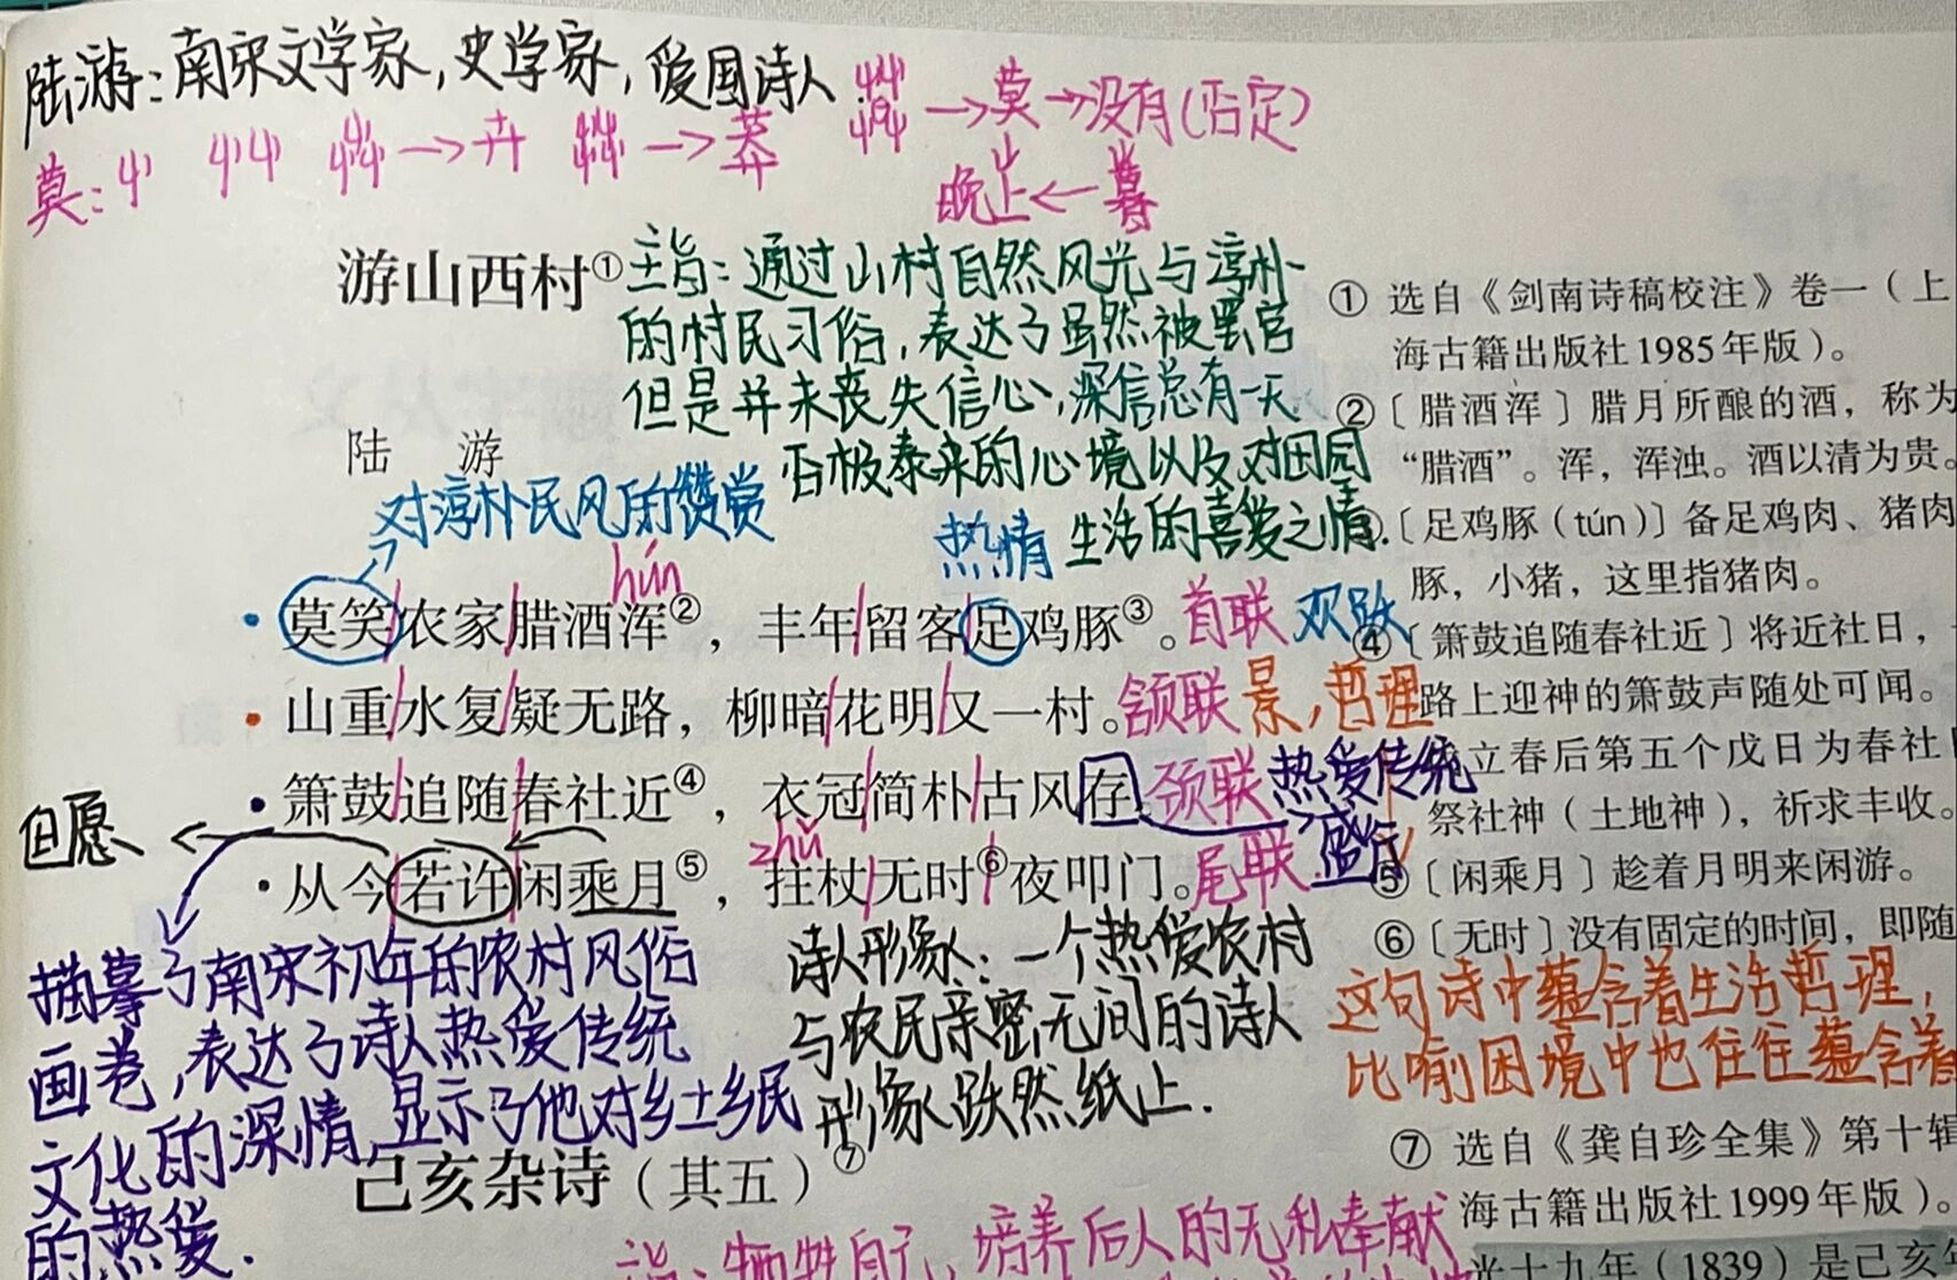 陆游：南宋文学家，史学家，爱国诗人
莫→没有（否定）
莫：
→卉
→莽
晚上←暮
游山西村①
主旨：通过山村自然风光与淳朴
的村民习俗，表达了虽然被罢官
但是并未丧失信心，深信总有一天
否极泰来的心境以及对田园
生活的喜爱之情.
陆 游
对淳朴民风的赞赏
热情
hún
莫笑农家腊酒浑②，丰年留客足鸡豚③。首联 欢跃
山重水复疑无路，柳暗花明又一村。颔联 景，哲理
箫鼓追随春社近④，衣冠简朴古风存 颈联 热爱传统
zhǔ
盛行
但愿
从今若许闲乘月⑤，拄杖无时⑥夜叩门。尾联
描摹了南宋初年的农村风俗
画卷，表达了诗人热爱传统
文化的深情，显示了他对乡土乡民
的热爱.
诗人形象：一个热爱农村
与农民亲密无间的诗人
形象跃然纸上.
己亥杂诗（其五）⑦
主旨：牺牲自己，培养后人的无私奉献
① 选自《剑南诗稿校注》卷一（上
海古籍出版社1985年版）。
②〔腊酒浑〕腊月所酿的酒，称为
“腊酒”。浑，浑浊。酒以清为贵。
〔足鸡豚（tún）〕备足鸡肉、猪肉
豚，小猪，这里指猪肉。
④〔箫鼓追随春社近〕将近社日，
路上迎神的箫鼓声随处可闻。
立春后第五个戊日为春社
祭社神（土地神），祈求丰收。
⑤〔闲乘月〕趁着月明来闲游。
⑥〔无时〕没有固定的时间，即随
这句诗中蕴含着生活哲理，
比喻困境中也往往蕴含着
⑦ 选自《龚自珍全集》第十辑
海古籍出版社1999年版）。
光十九年（1839）是己亥